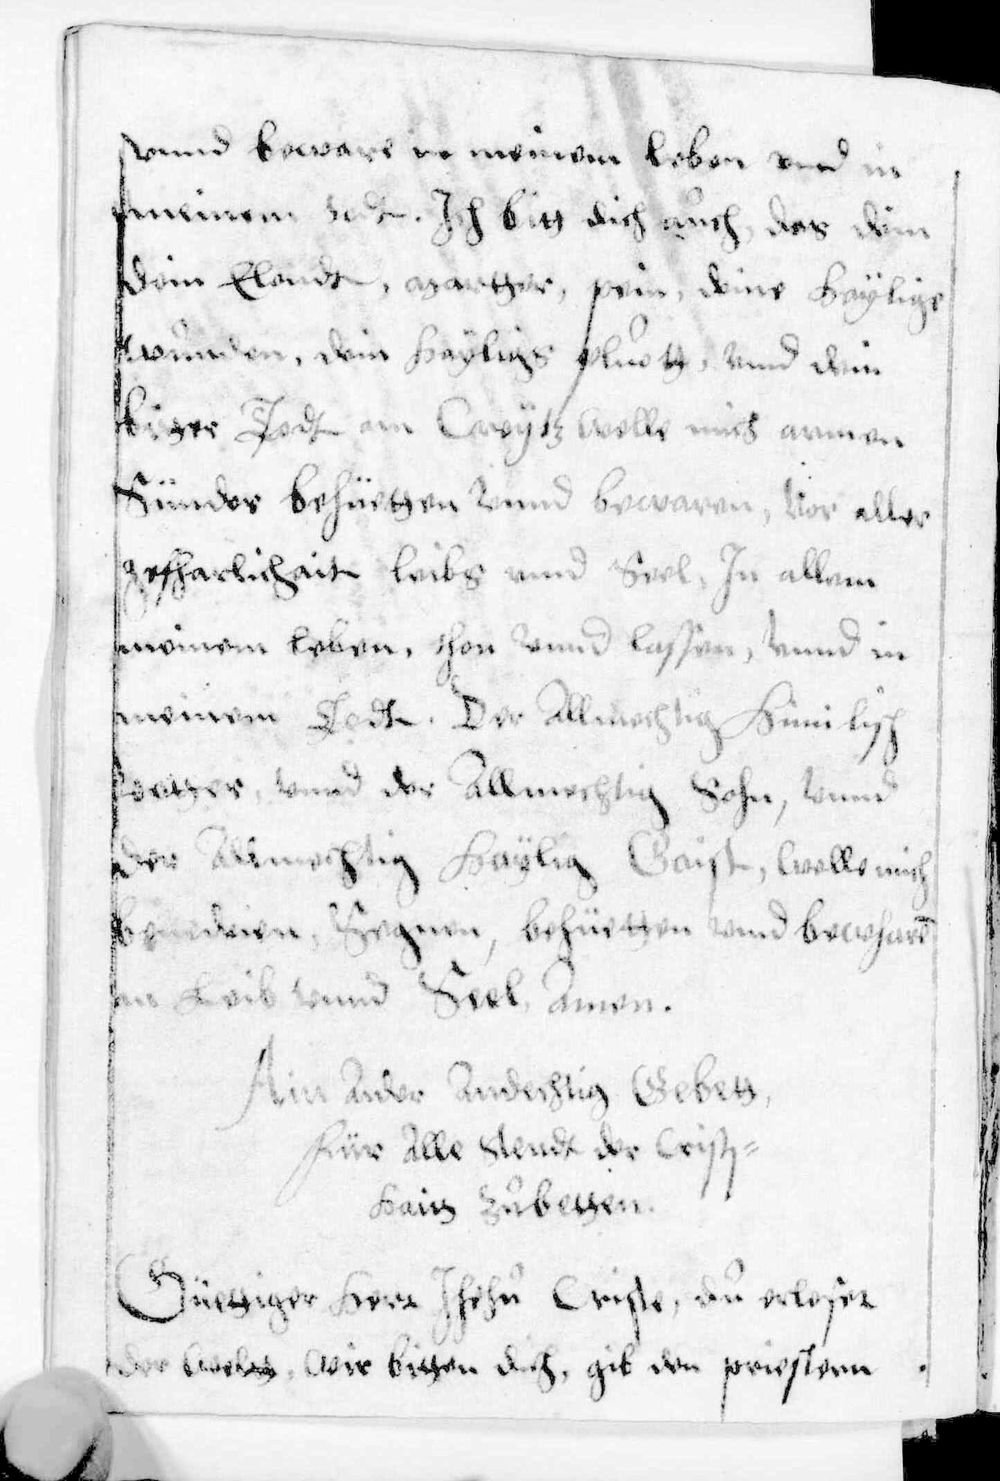 vnnd beware in meinem leben vnd in
meinem todt. Ich bitt dich aůch, das dein
dein Elendt, martter, pein, deine Haÿlige
wůnden, dein Haÿligs plůott, vnnd dein
bitter Todt am Creÿtz welle mich armen
Sünder behüetten vnnd bewaren, vor aller
gefharlichait leibs vnnd Seel, In allem
meinem leben, thon vnnd lassen, vnnd in
meinem Todt. Der Allmechtig Himlisch
vatter, vnnd der Allmechtig Sohn, vnnd
der Allmechtig Haÿlig Gaist, welle mich
Segnen, behüetten vnnd bewharē
an Leib vnnd Seel, Amen.
Ain Ander Andechtig Gebett,
Für Alle Stendt der Crist=
Haitt zůbetten.
Güettiger Herr Jhesu Criste, dů erloser
der weltt, wir bitten dich, gib den priestern